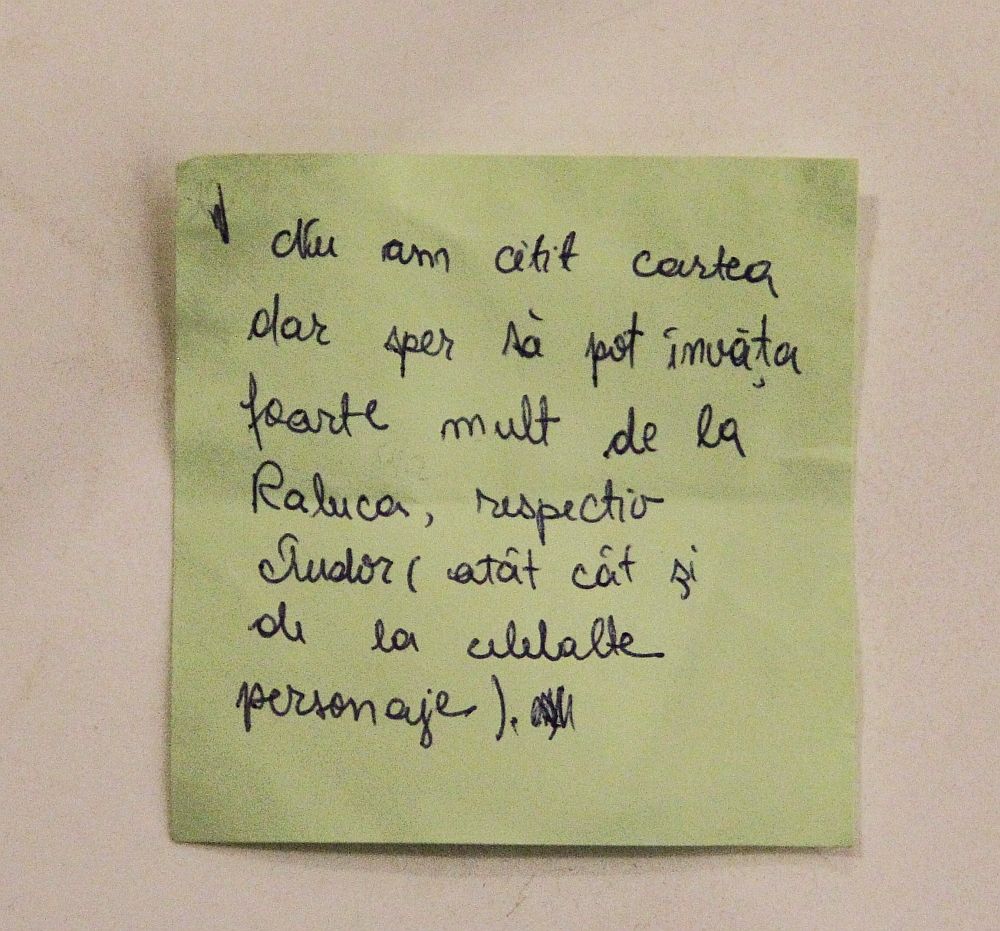 Nu am citit cartea
dar sper să pot învăța
foarte mult de la
Raluca, respectiv
Tudor (atât cât și
de la celelalte
personaje).